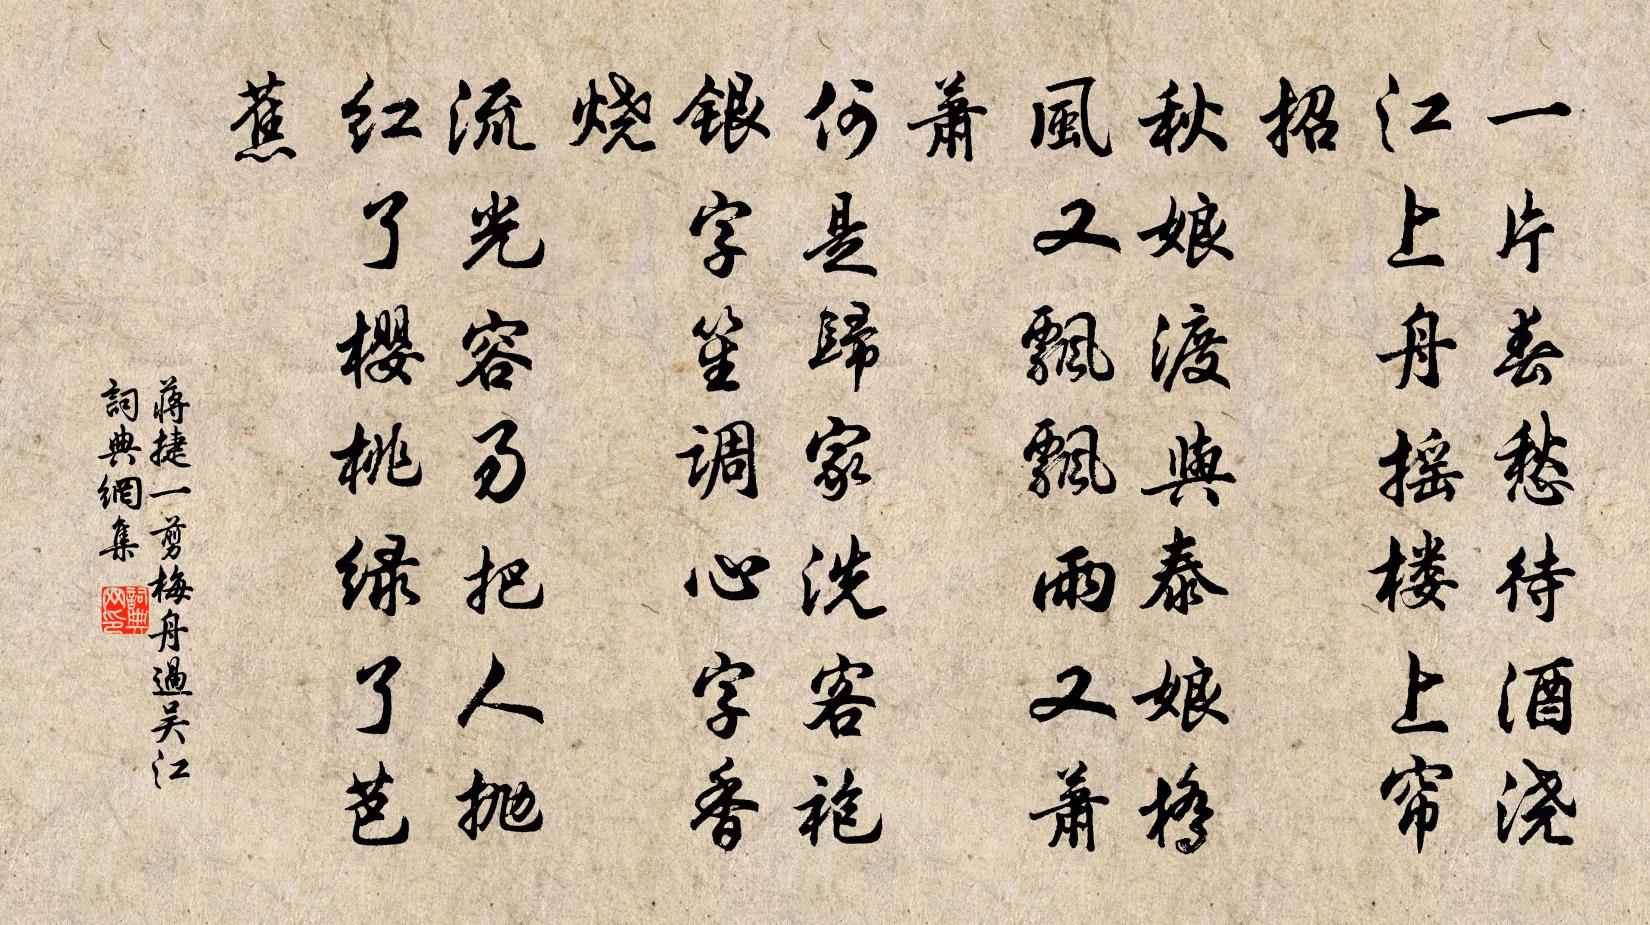 一片春愁待酒浇
江上舟摇楼上帘
招
秋娘渡與泰娘橋
風又飄飄雨又蕭
蕭
何是歸家洗客袍
銀字笙调心字香
烧
流光容易把人抛
红了櫻桃绿了芭
蕉
蔣捷一剪梅舟過吴江
詞典網集
詞典网印